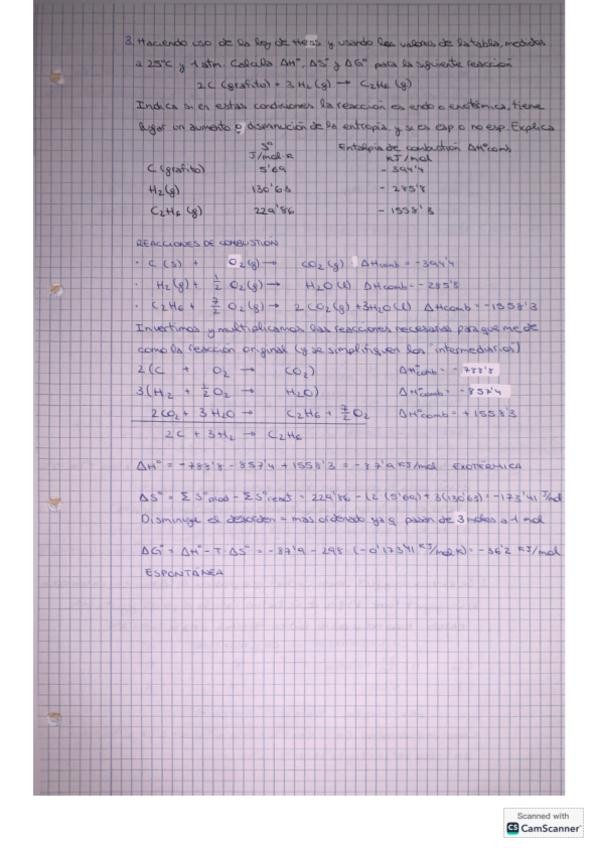 3. Haciendo uso de la ley de Hess y usando los valores de la tabla, medidos
a 25°C y 1 atm. Calcula ΔH°, ΔS° y ΔG° para la siguiente reacción
2C (grafito) + 3H₂(g) → C₂H₆ (g)
Indica si en estas condiciones la reacción es endo o exotérmica, tiene
lugar un aumento o disminución de la entropía y si es esp o no esp. Explica
S° Entalpía de combustión ΔH°comb
J/mol·K KJ/mol
C (grafito) 5'69 - 394'4
H₂(g) 130'63 - 285'8
C₂H₆ (g) 229'86 - 1558'3
REACCIONES DE COMBUSTIÓN
· C(s) + O₂(g) → CO₂(g) ΔHcomb = -394'4
· H₂(g) + 1/2 O₂(g) → H₂O(l) ΔHcomb = -285'8
· C₂H₆ + 7/2 O₂(g) → 2CO₂(g) + 3H₂O(l) ΔHcomb = -1558'3
Invertimos y multiplicamos las reacciones necesarias para que me de
como la reacción original (y se simplifiquen los "intermediarios")
2(C + O₂ → CO₂) ΔH°comb = - 788'8
3(H₂ + 1/2 O₂ → H₂O) ΔH°comb = - 857'4
2CO₂ + 3H₂O → C₂H₆ + 7/2 O₂ ΔH°comb = + 1558'3
2C + 3H₂ → C₂H₆
ΔH° = -788'8 - 857'4 + 1558'3 = -87'9 KJ/mol EXOTÉRMICA
ΔS° = Σ S°prod - Σ S°react = 229'86 - (2(5'69) + 3(130'63) = -173'41 J/mol
Disminuye el desorden = más ordenado ya q pasan de 3 moles a 1 mol
ΔG° = ΔH° - T·ΔS° = -87'9 - 298 (-0'17341 KJ/mol·K) = -36'2 KJ/mol
ESPONTÁNEA
Scanned with
CS CamScanner